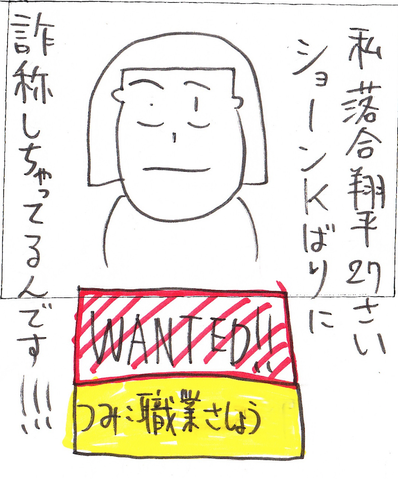 私落合翔平27さい
ショーンKばりに
詐称しちゃってるんです!!!
WANTED!!
つみ:職業さしょう